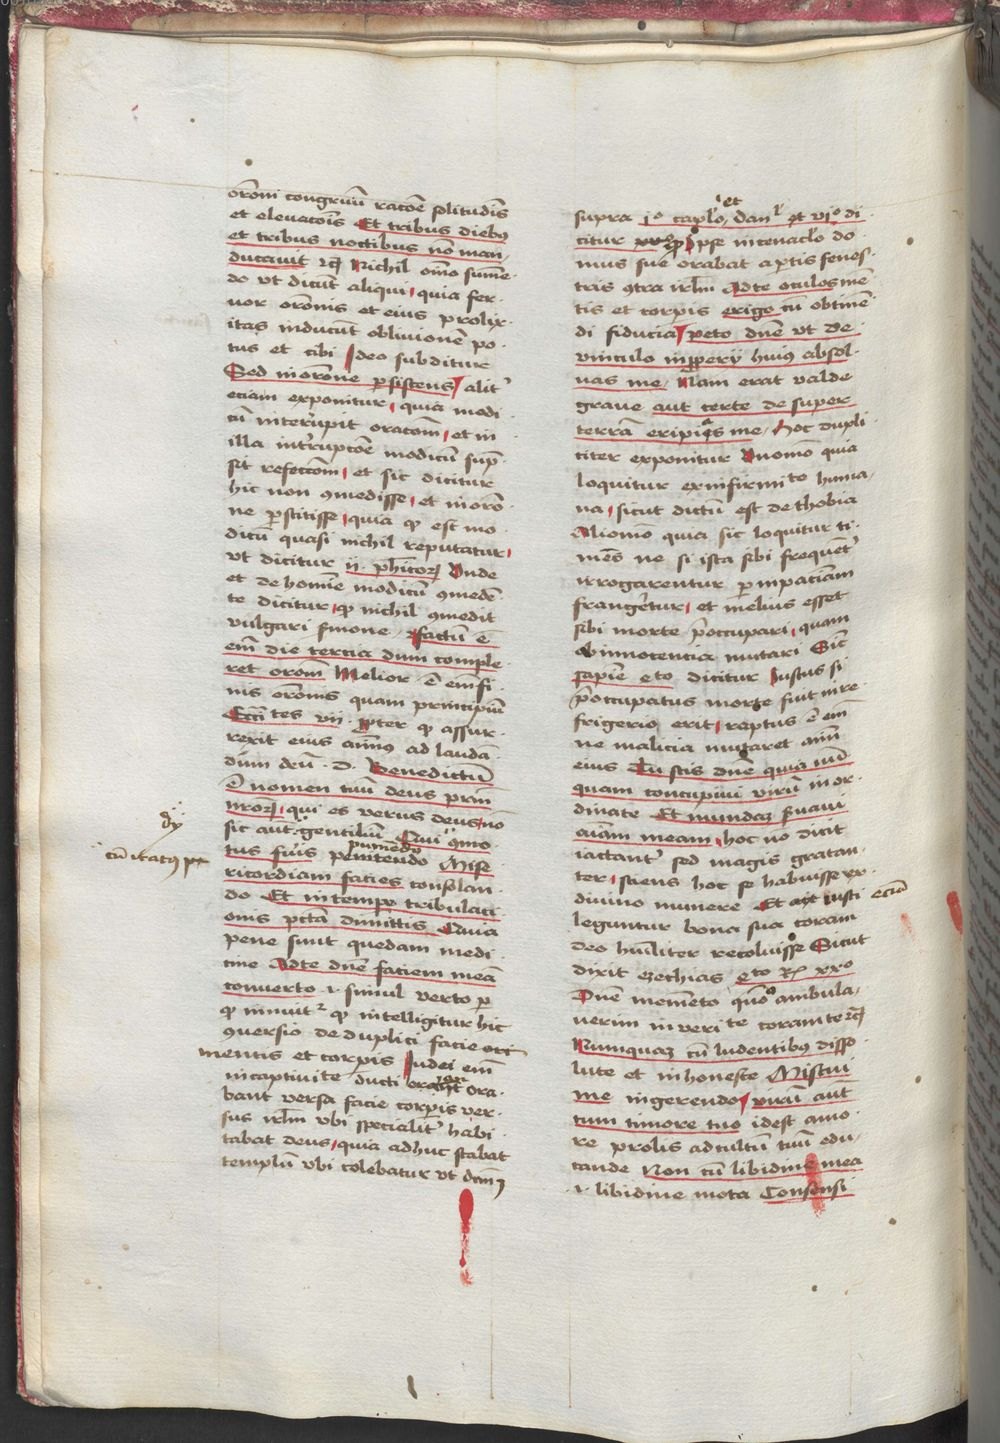 oronī congruū racōe solitudīs
et elevacōis Et tribus diebꝰ
et tribus noctibus nō man
ducavit ꝛcͣ Nichil oīno sume
do vt dicūt aliqui quia fer
uor orōnis et eius prolix
itas inducūt oblivionē po
tus et cibi Ideo subditur
Sed inorōne ꝑsistens alit᷑
eciam exponitur quia modi
cū int᷑rupit oracōm et in
illa int᷑rupcōe modicū sup
sit refectōm et sic dicitur
hic non ꝯmedisse et inorō
ne ꝑstitisse quia ꝙ est mo
dicū quasi nichil reputatur
vt dicitur ij phīcoꝝ Vnde
et de homīe modicū ꝯmedē
te dicitur ꝙ nichil ꝯmedit
vulgari ẜmone factū ē
em̄ die tercia dum comple
ret orōnī Melior ē em̄ fi
nis orōnis quam principiū
Ecc̄tes vij ꝓpter ꝙ assur
rexit eius aīmꝰ ad laudā
dūm deū D Benedictū
ē nomen tuū deus prīm
nr̄oꝝ qui es verus deus nō
sic aut gentiliū Cui ꝯmo
dij
cū iratꝰ
tus fūis penitendo Mise
ricordiam facies consolan
do Et in tempe tribulaci
onis pctā dimittis Quia
pene sunt quedam medi
cine Adte dn̄e faciem meā
conuerto .i. simul verto ꝑ
ꝙ innuit᷑ ꝙ intelligitur hic
ꝯuersio de duplici facie
mentis et corpis Iudei em̄
incaptivite ducti ora
bant versa facie corpīs ver
sus irl̄m vbi specialit᷑ habi
tabat deus quia adhuc stabat
templū vbi colebatur vt
et
supra jº caplo, Danˡ vjº di
citur ꝙ Ipse incenaclo do
mus sue orabat aꝑtis fenes
tris ꝯtra irl̄m Adte oculos mē
tis et corpis erigo cū obtinē
di fiducia peto dn̄e vt de
vinculo inꝓperij huiꝰ absol
uas me Nam erat valde
graue aut certe de super
terrā eripias me hoc dupli
citer exponitur Vnomō quia
loquitur exinfirmite huma
na sicut dictū est de thobia
Aliomō quia sic loquitur ti
mēs ne si ista sibi frequēt᷑
irrogarentur ꝑ inpaciām
frang᷑etur et melius esset
sibi morte p̄occupari quam
ab innocentia mutari Sic̄
sapiēe 4to dicitur Iustus si
p̄occupatus morte fuit in re
frigerio erit raptus ē em̄
ne malicia mutaret aīm
eius Tu scis dn̄e quia nū
quam concupivi virū inor
dinate Et mundaꝫ ẜuaui
aīam meam hoc nō dicit
iactant᷑ sed magis gratan
ter sciens hoc se habuisse ex
diuino munere Et iusti eciā
leguntur bona sua coram
deo hūiliter recoluisse Sicut
dixit ezechias 4to Rͫ xxº
Dn̄e memēto quōº ambula
uerim in veri te coram te ꝛcͣ
Numquaꝫ cū ludentibꝰ disso
lute et inhoneste Miscui
me ingerendo virū aūt
tum timore tuo idest amo
re prolis adcultū tuū edu
cande Non cū libidine mea
.i. libidine mota Consensi